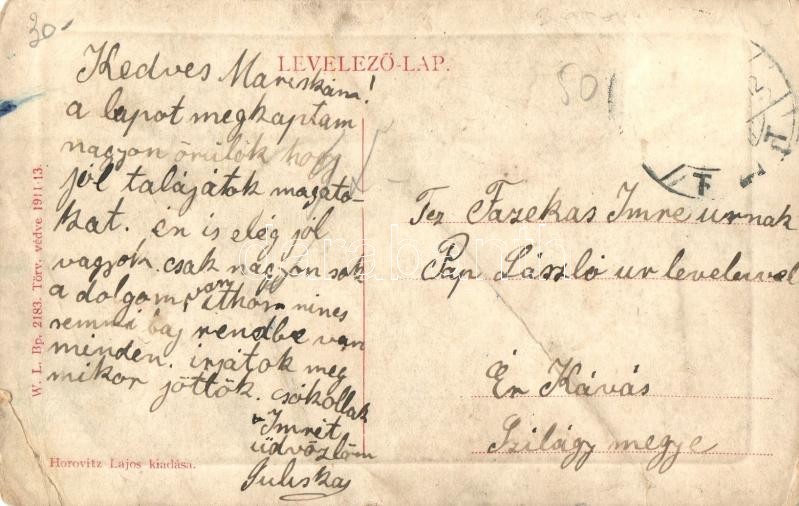 30.
LEVELEZŐ-LAP.
50
Kedves Mariskám!
a lapot megkaptam
nagyon örülök hogy
jól találjátok magato-
kat. én is elég jól
vagyok. csak nagyon sok
a dolgom, van ithon nincs
semmi baj rendbe van
minden. irjátok meg
mikor jöttök. csókollak
Imrét
üdvözlöm
Juliska
Fazekas Imre urnak
Pap László ur levelével
Ér Kávás
Szilágy megye
W. L. Bp. 2183. Törv. védve 1911-13.
Horovitz Lajos kiadása.
darabanth